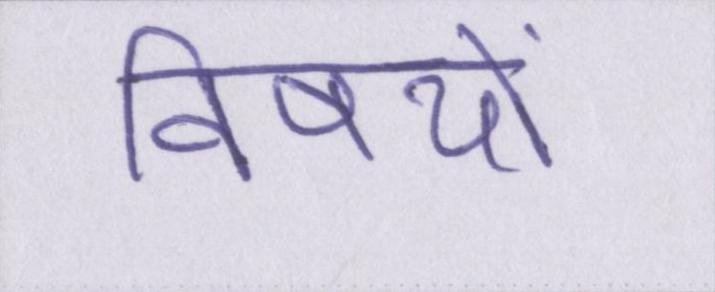 विषयों